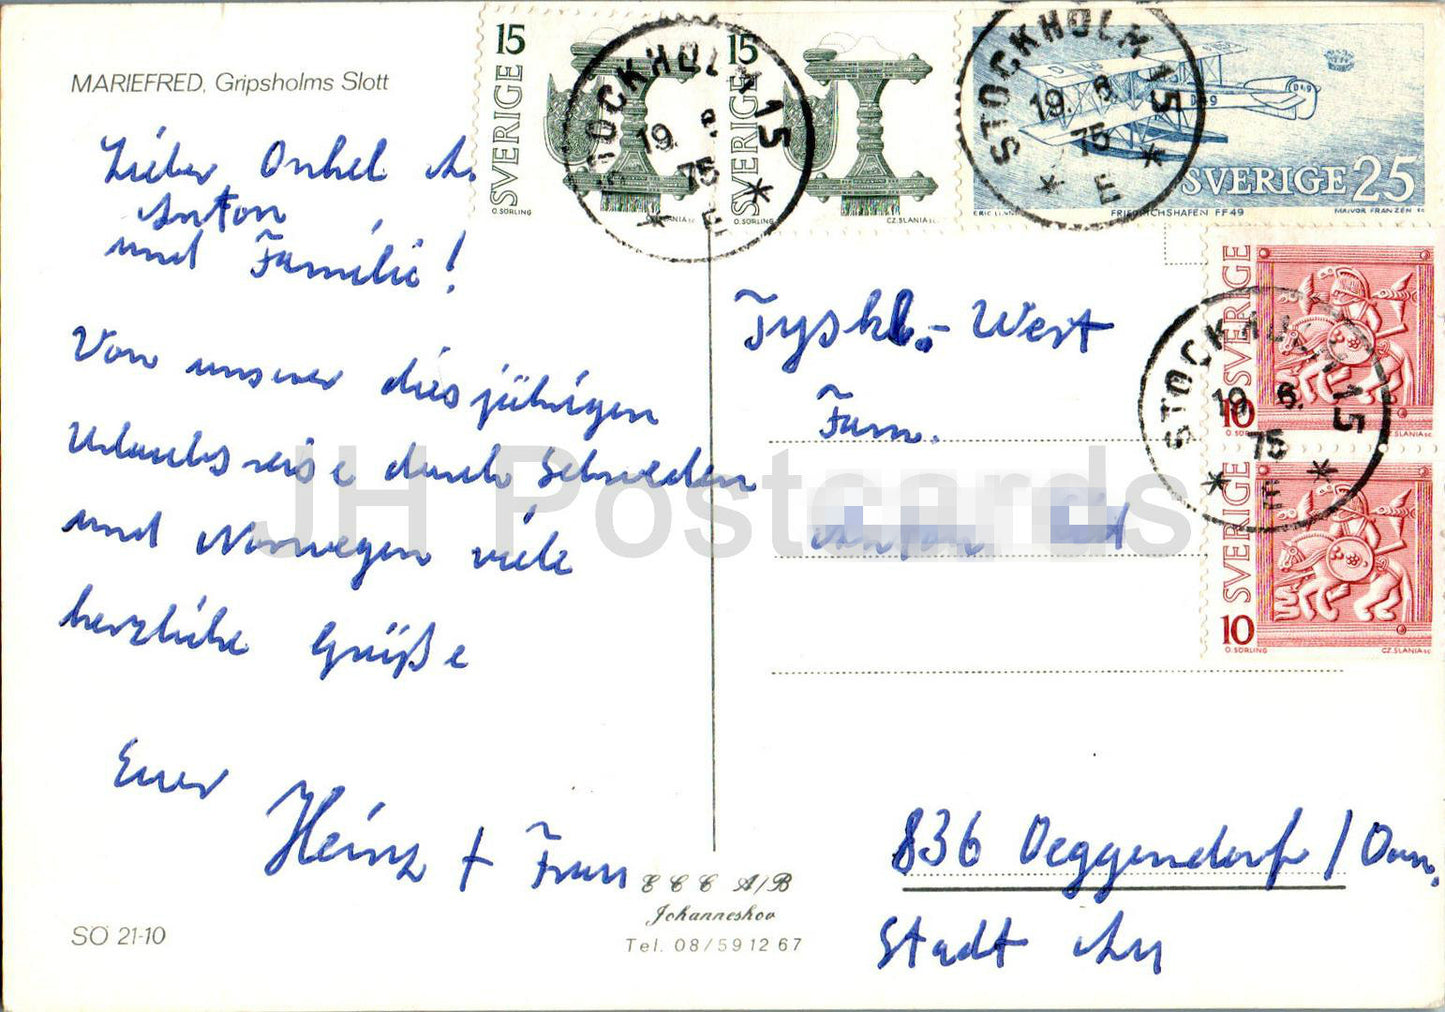 MARIEFRED, Gripsholms Slott
Lieber Onkel
Anton,
und Familie!
Von unserer diesjährigen
Urlaubsreise durch Schweden
und Norwegen viele
herzliche Grüße
Euer
Heinz + Frau
SÖ 21-10
E C C A/B
Johanneshov
Tel. 08/59 12 67
15
SVERIGE
O. SÖRLING
CZ.SLANIA sc
15
SVERIGE
O. SÖRLING
CZ.SLANIA sc
STOCKHOLM 15
19. 6.
75
E
D49
SVERIGE 25
FRIEDRICHSHAFEN FF49
MAJVOR FRANZÉN sc
STOCKHOLM 15
19. 6.
75
E
SVERIGE
10
O. SÖRLING
CZ.SLANIA sc
STOCKHOLM 15
19. 6.
75
E
SVERIGE
10
O. SÖRLING
CZ.SLANIA sc
Tyskl.- West
Fam.
Anton
836 Deggendorf / Don.
Stadt Au
JH Postcards